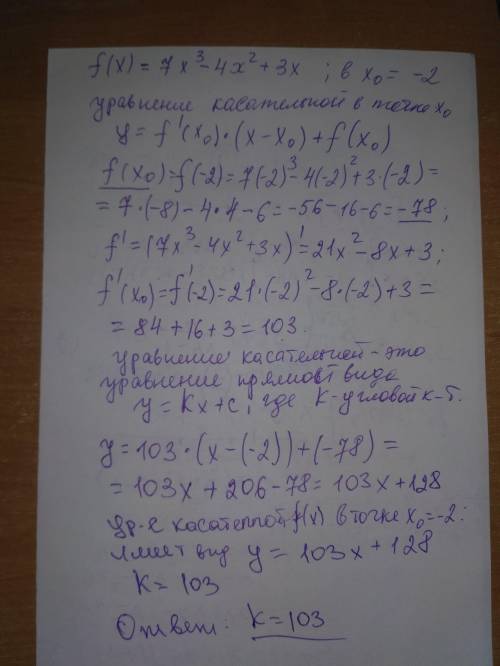 f(x) = 7x³ - 4x² + 3x ; в x₀ = -2
уравнение касательной в точке x₀
y = f'(x₀)·(x - x₀) + f(x₀)
f(x₀) = f(-2) = 7(-2)³ - 4(-2)² + 3·(-2) =
= 7·(-8) - 4·4 - 6 = -56 - 16 - 6 = -78 ;
f' = (7x³ - 4x² + 3x)' = 21x² - 8x + 3 ;
f'(x₀) = f'(-2) = 21·(-2)² - 8·(-2) + 3 =
= 84 + 16 + 3 = 103.
уравнение касательной - это
уравнение прямой вида
y = kx + c, где k - угловой к-т.
y = 103·(x - (-2)) + (-78) =
= 103x + 206 - 78 = 103x + 128
Ур-е касательной f(x) в точке x₀ = -2 :
имеет вид y = 103x + 128
k = 103
Ответ: k = 103